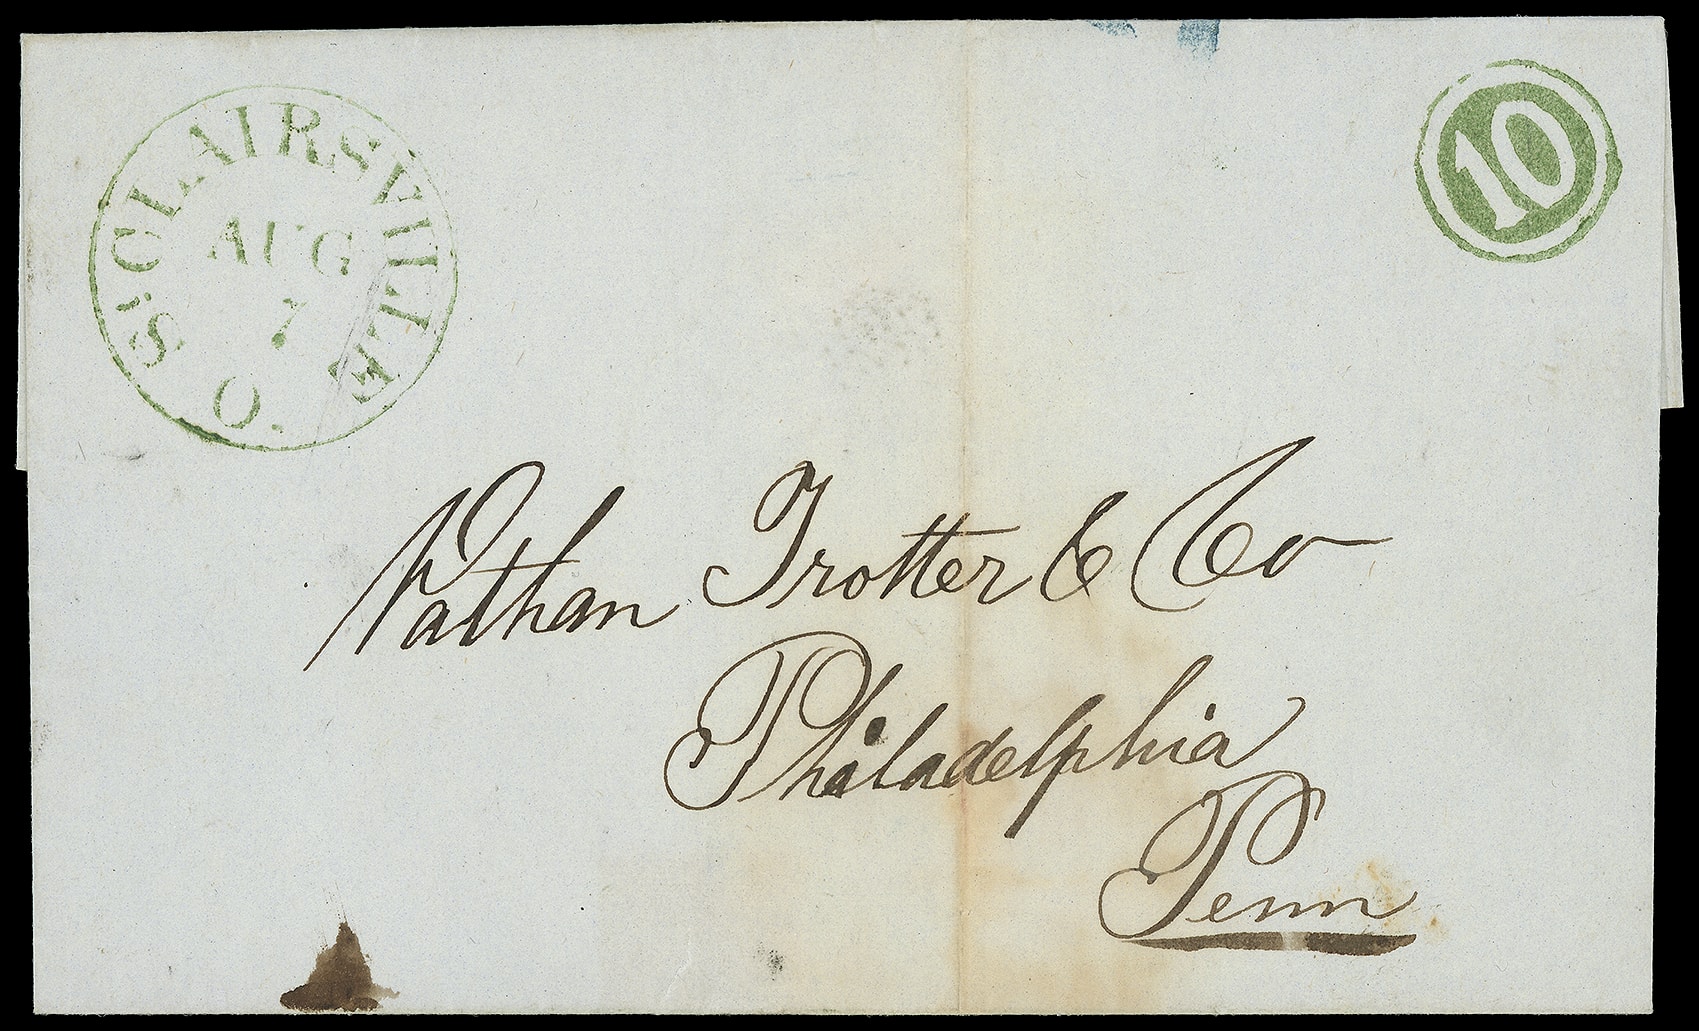 ST. CLAIRSVILLE O.
AUG
7
10
Nathan Trotter & Co
Philadelphia
Penn